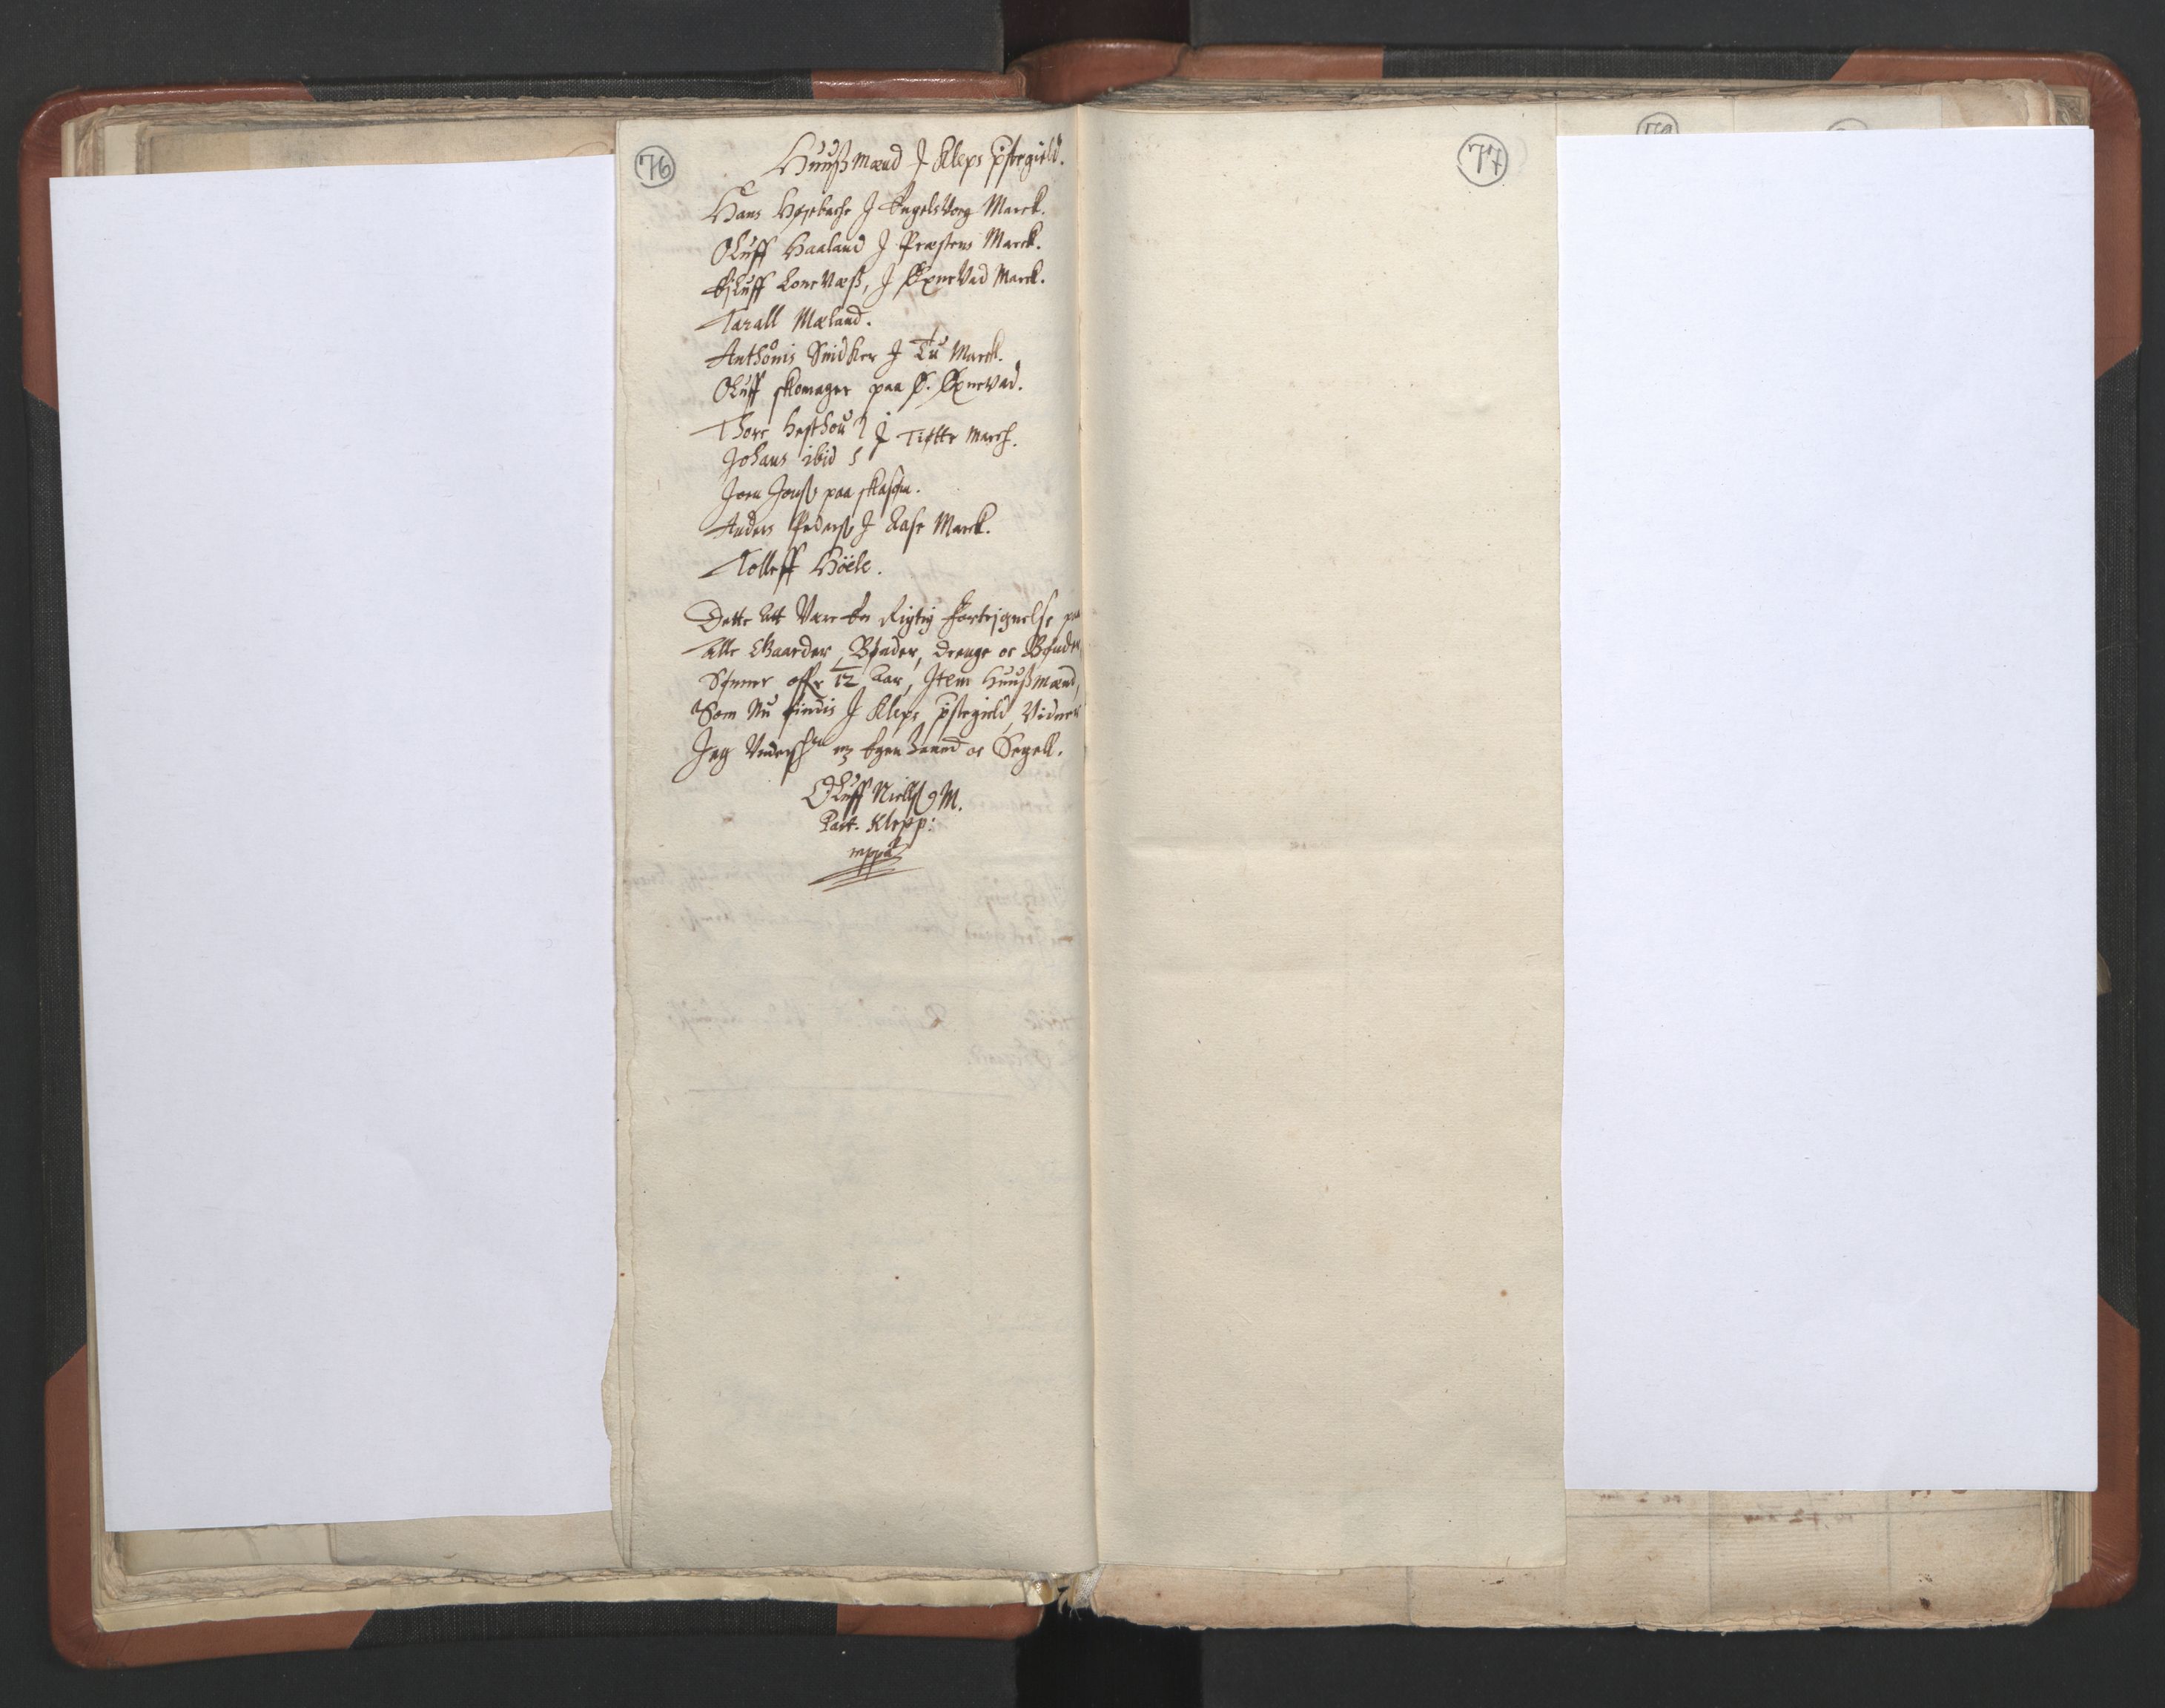 76
Huußmænd J Kleps pstegield.
Hans Høyebache J Engelsvog Marck.
Oluff Haaland J Præstens Marck.
Eiluff Lonevæß, J Øxnevad Marck.
Tarall Mæland.
Anthonis Snidker J Tu Marck.
Oluff skomager paa S. Øxnevad.
Thore Hesthou } J Tiøtte Marck.
Johans ibid
Jorn Jonß paa skasem.
Anders Pederß J Aase Marck.
Tolleff Höele.
Dette Att Være En Rigtig Fortejgnelse paa
Alle Gaarder, Bønder, Drenge oc Bønder
Sønner offr 12 Aar, Jtem Huußmænd,
Som Nu findis J Kleps pstegield, Vidner
Jeg Underschr. m; Egen haand oc Segell.
Oluff Nielß M.
Past. Klepp:
mppa
77